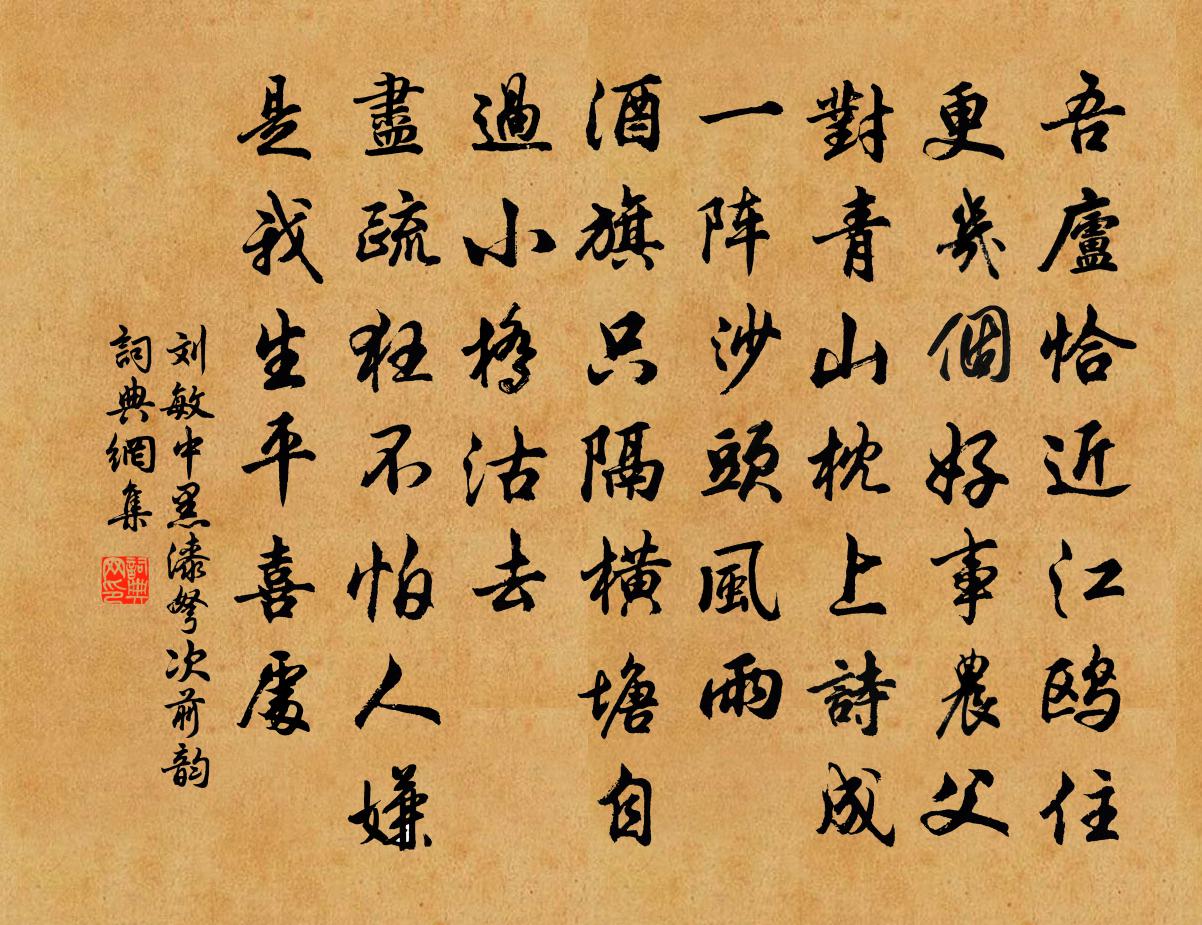 吾廬恰近江鸥住
更幾個好事農父
對青山枕上詩成
一阵沙頭風雨
酒旗只隔橫塘自
過小橋沽去
盡疏狂不怕人嫌
是我生平喜處
刘敏中黑漆弩次前韵
詞典網集
詞典網印